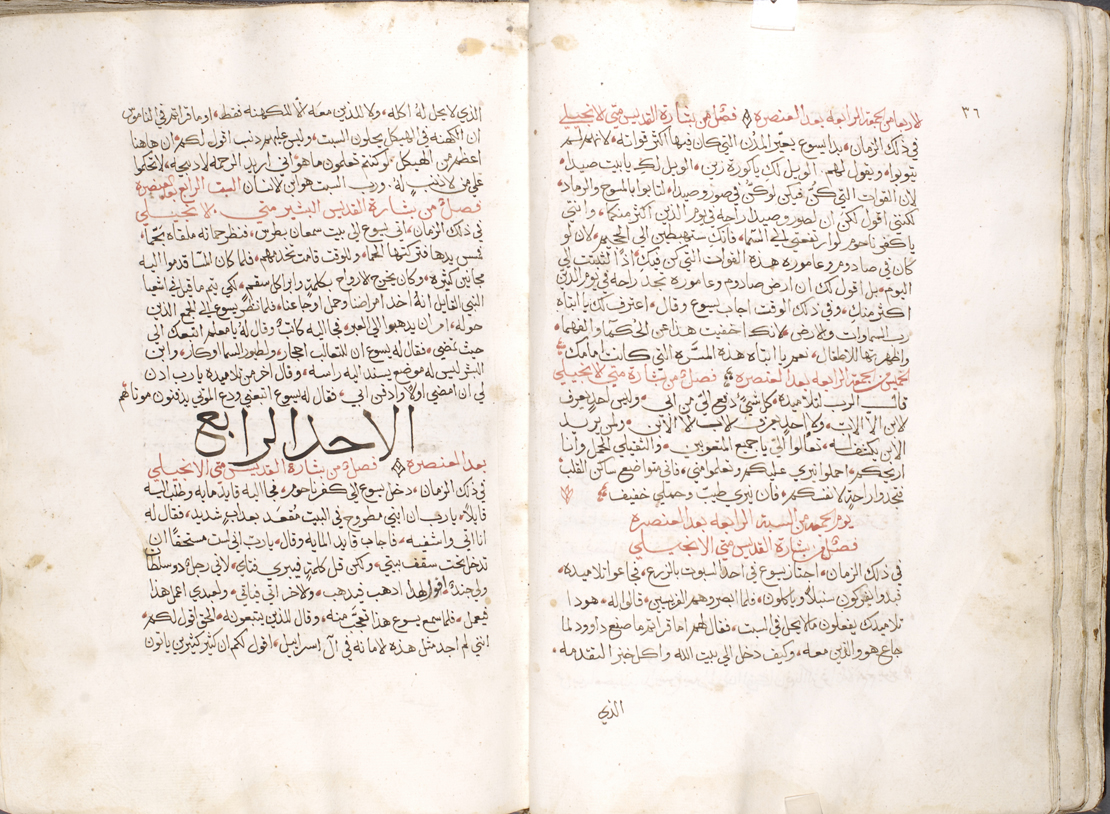 ٣٦
لاربعا من الجمعة الرابعه بعد العنصرة فصل من بشارة القديس متى الانجيلي
في ذلك الزمان بدا يسوع يعير المدن التي كان فيها اكثر قواته لانهم لم
يتوبوا ويقول لهم الويل لك يا كورة زين الويل لك يا بيت صيدا
لان القوات التي كن فيكن لو كن في صور وصيدا لتابوا بالمسوح والرماد
لكنني اقول لكن ان لصور وصيدا راحه في يوم الدين اكثر منكما وانتي
يا كفر ناحوم لو ارتفعتي الى السما فانك ستهبطين الى الجحيم لان لو
كان في صادوم وعاموره هذة القوات التي كن فيك اذا لثبتت الى
اليوم بل اقول لك ان ارض صادوم وعاموره تجد راحه في يوم الدين
اكثر منك وفي ذلك الوقت اجاب يسوع وقال اعترف لك يا ابتاه
رب السماوات والارض لانك اخفيت هذا عن الحكما والفهما
واظهرتها للاطفال نعم يا ابتاه هذة المسرة التي كانت امامك
الخميس من الجمعة الرابعه بعد العنصرة فصل من بشارة متى الانجيلي
قال الرب لتلاميذه كل شي دفع الي من ابي وليس احد يعرف
الابن الا الاب ولا احد يعرف الاب الا الابن ولمن يريد
الابن يكشف له تعالوا الي يا جميع المتعوبين والثقيلي الحمل وانا
اريحكم احملوا نيري عليكم وتعلموا مني فاني متواضع ساكن القلب
تجدوا راحة لانفسكم فان نيري طيب وحملي خفيف
يوم الجمعه من السبة الرابعه بعد العنصرة
فصل من بشارة القديس متى الانجيلي
في ذلك الزمان اجتاز يسوع في احد السبوت بالزرع فجاعوا تلاميذه
فبدوا يفركون سنبلا وياكلون فلما ابصروهم الفريسين قالوا له هوذا
تلاميذك يفعلون ما لا يحل في السبت فقال لهم اما قراتم ما صنع داوود لما
جاع هو والذين معه وكيف دخل الى بيت الله واكل خبز التقدمه
الذي
الذي لا يحل له اكله ولا للذين معه الا للكهنه فقط اوما قراتم في الناموس
ان الكهنه في الهيكل يحلون السبت وليس عليهم ذنب اقول لكم ان هاهنا
اعظم من الهيكل لو كنتم تعلمون ما هو اني اريد الرحمه لا ذبيحه لا تحكموا
على من لا ذنب له ورب السبت هو ابن الانسان السبت الرابع بعد العنصرة
فصل من بشارة القديس البشير متى الانجيلي
في ذلك الزمان اتى يسوع الى بيت سمعان بطرس فنظر حماته ملقاه بحما
فمس يدها فتركتها الحما وللوقت قامت تخدمهم فلما كان المسا قدموا اليه
مجانين كثيرة وكان يخرج الارواح بكلمته وابرا كل سقم لكي يتم ما قيل في اشعيا
النبي القايل انه اخذ امراضنا وحمل اوجاعنا فلما نظر يسوع الى الجمع الذين
حوله امر ان يذهبوا الى العبر فاتى اليه كاتب وقال له يا معلم اتبعك الى
حيث تمضي فقال له يسوع ان للثعالب احجار ولطيور السما اوكار وابن
البشر ليس له موضع يسند اليه راسه وقال اخر من تلاميذه يا رب اذن
لي ان امضي اولا وادفن ابي فقال له يسوع اتبعني ودع الموتى يدفنون موتاهم
الاحد الرابع
بعد العنصرة فصل من بشارة القديس متى الانجيلي
في ذلك الزمان دخل يسوع الى كفر ناحوم فجا اليه قايد مايه وطلب اليه
قايلا يا رب ان ابني مطروح في البيت مقعد بعذاب شديد فقال له
انا اتي واشفيه فاجاب قايد المايه وقال يا رب اني لست مستحقا ان
تدخل تحت سقف بيتي ولكن قل كلمة فيبري فتاي لاني رجل ذو سلطا
ولي جند اقول لهذا اذهب فيذهب ولاخر اتي فياتي ولعبدي اعمل هذا
فيعمل فلما سمع يسوع هذا تعجب منه وقال للذين يتبعونه الحق اقول لكم
انني لم اجد مثل هذه الامانه في آل اسراييل اقول لكم ان كثير كثيرين ياتون